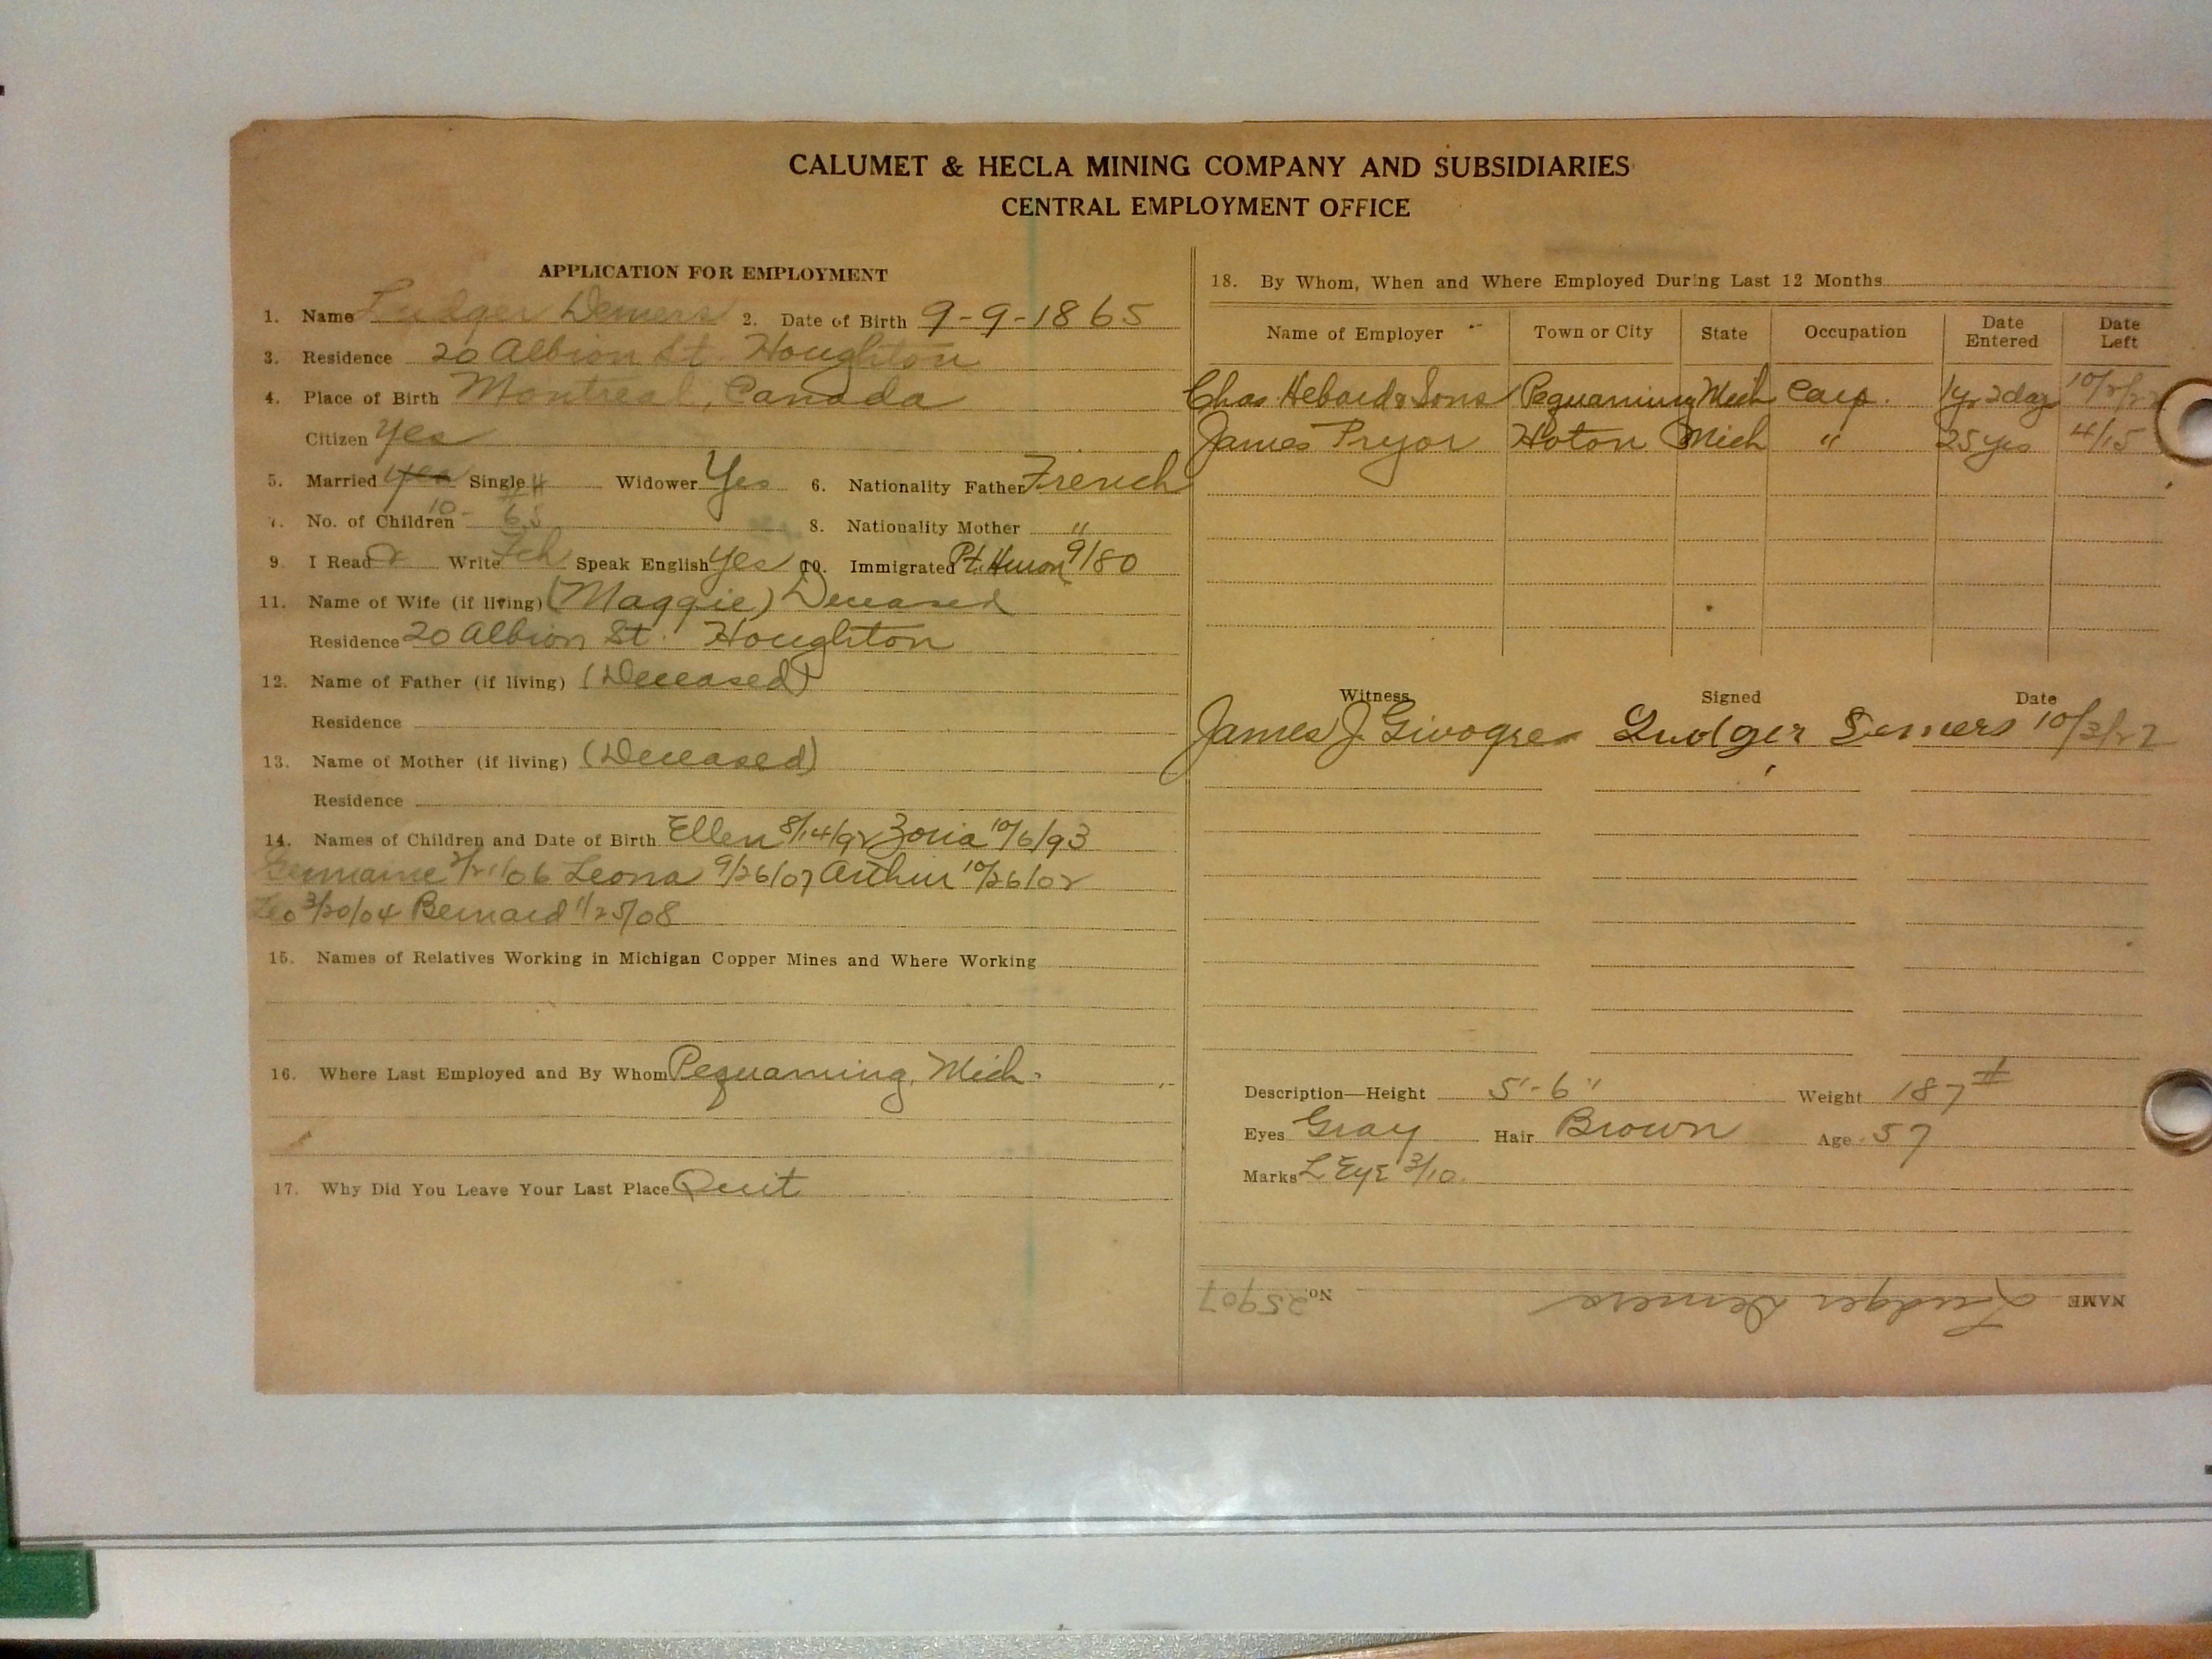 CALUMET & HECLA MINING COMPANY AND SUBSIDIARIES
CENTRAL EMPLOYMENT OFFICE
APPLICATION FOR EMPLOYMENT
1. Name Ludger Demers 2. Date of Birth 9-9-1865
3. Residence 20 Albion St. Houghton
4. Place of Birth Montreal, Canada
Citizen Yes
5. Married yes Single Widower Yes 6. Nationality Father French
7. No. of Children 8. Nationality Mother "
9. I Read & Write Fch Speak English Yes 10. Immigrated Pt. Huron 9/80
11. Name of Wife (if living) (Maggie) Deceased
Residence 20 Albion St. Houghton
12. Name of Father (if living) (Deceased)
Residence
13. Name of Mother (if living) (Deceased)
Residence
14. Names of Children and Date of Birth Ellen 8/14/92 Zoria 10/6/93
Germaine 06 Leona 9/26/07 Arthur 10/26/02
Leo 3/20/04 Bernard 1/25/08
15. Names of Relatives Working in Michigan Copper Mines and Where Working
16. Where Last Employed and By Whom Pequaming, Mich.
17. Why Did You Leave Your Last Place Quit
18. By Whom, When and Where Employed During Last 12 Months
Name of Employer Town or City State Occupation Date Entered Date Left
Chas Hebard & Sons Pequaming Mich Carp. 1yr 2days 10/2/22
James Pryor Hoton Mich " 25 yrs 4/15
Witness Signed Date
James J. Givogre Ludger Demers 10/3/22
Description—Height 5'-6" Weight 187#
Eyes Gray Hair Brown Age 57
Marks L Eye 3/10.
NAME Ludger Demers No. 25907